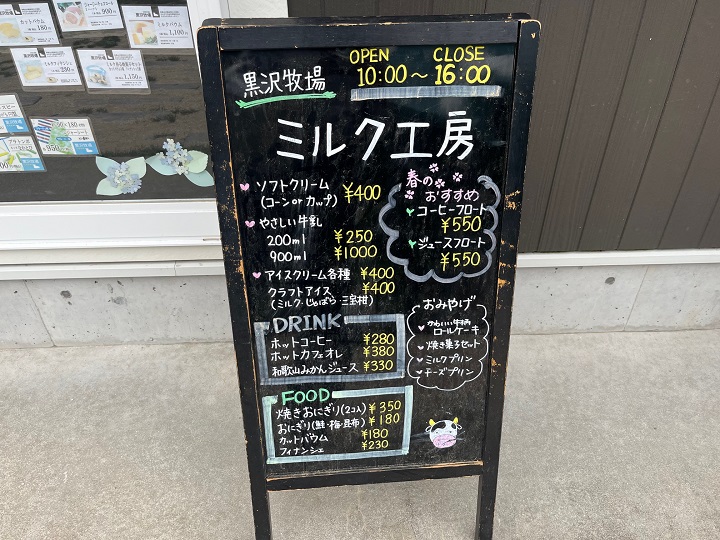 黒沢牧場
OPEN CLOSE
10:00～16:00
ミルク工房
ソフトクリーム
(コーン or カップ) ¥400
やさしい牛乳
200ml ¥250
900ml ¥1000
アイスクリーム各種 ¥400
クラフトアイス ¥400
(ミルク・じゃばら・三宝柑)
春の
おすすめ
コーヒーフロート
¥550
ジュースフロート
¥550
DRINK
ホットコーヒー ¥280
ホットカフェオレ ¥380
和歌山みかんジュース ¥330
FOOD
焼きおにぎり(2コ入) ¥350
おにぎり(鮭・梅・昆布) ¥180
カットバウム ¥180
フィナンシェ ¥230
おみやげ
かわいい牛柄
ロールケーキ
焼き菓子セット
ミルクプリン
チーズプリン
カットバウム
180円
1,100円